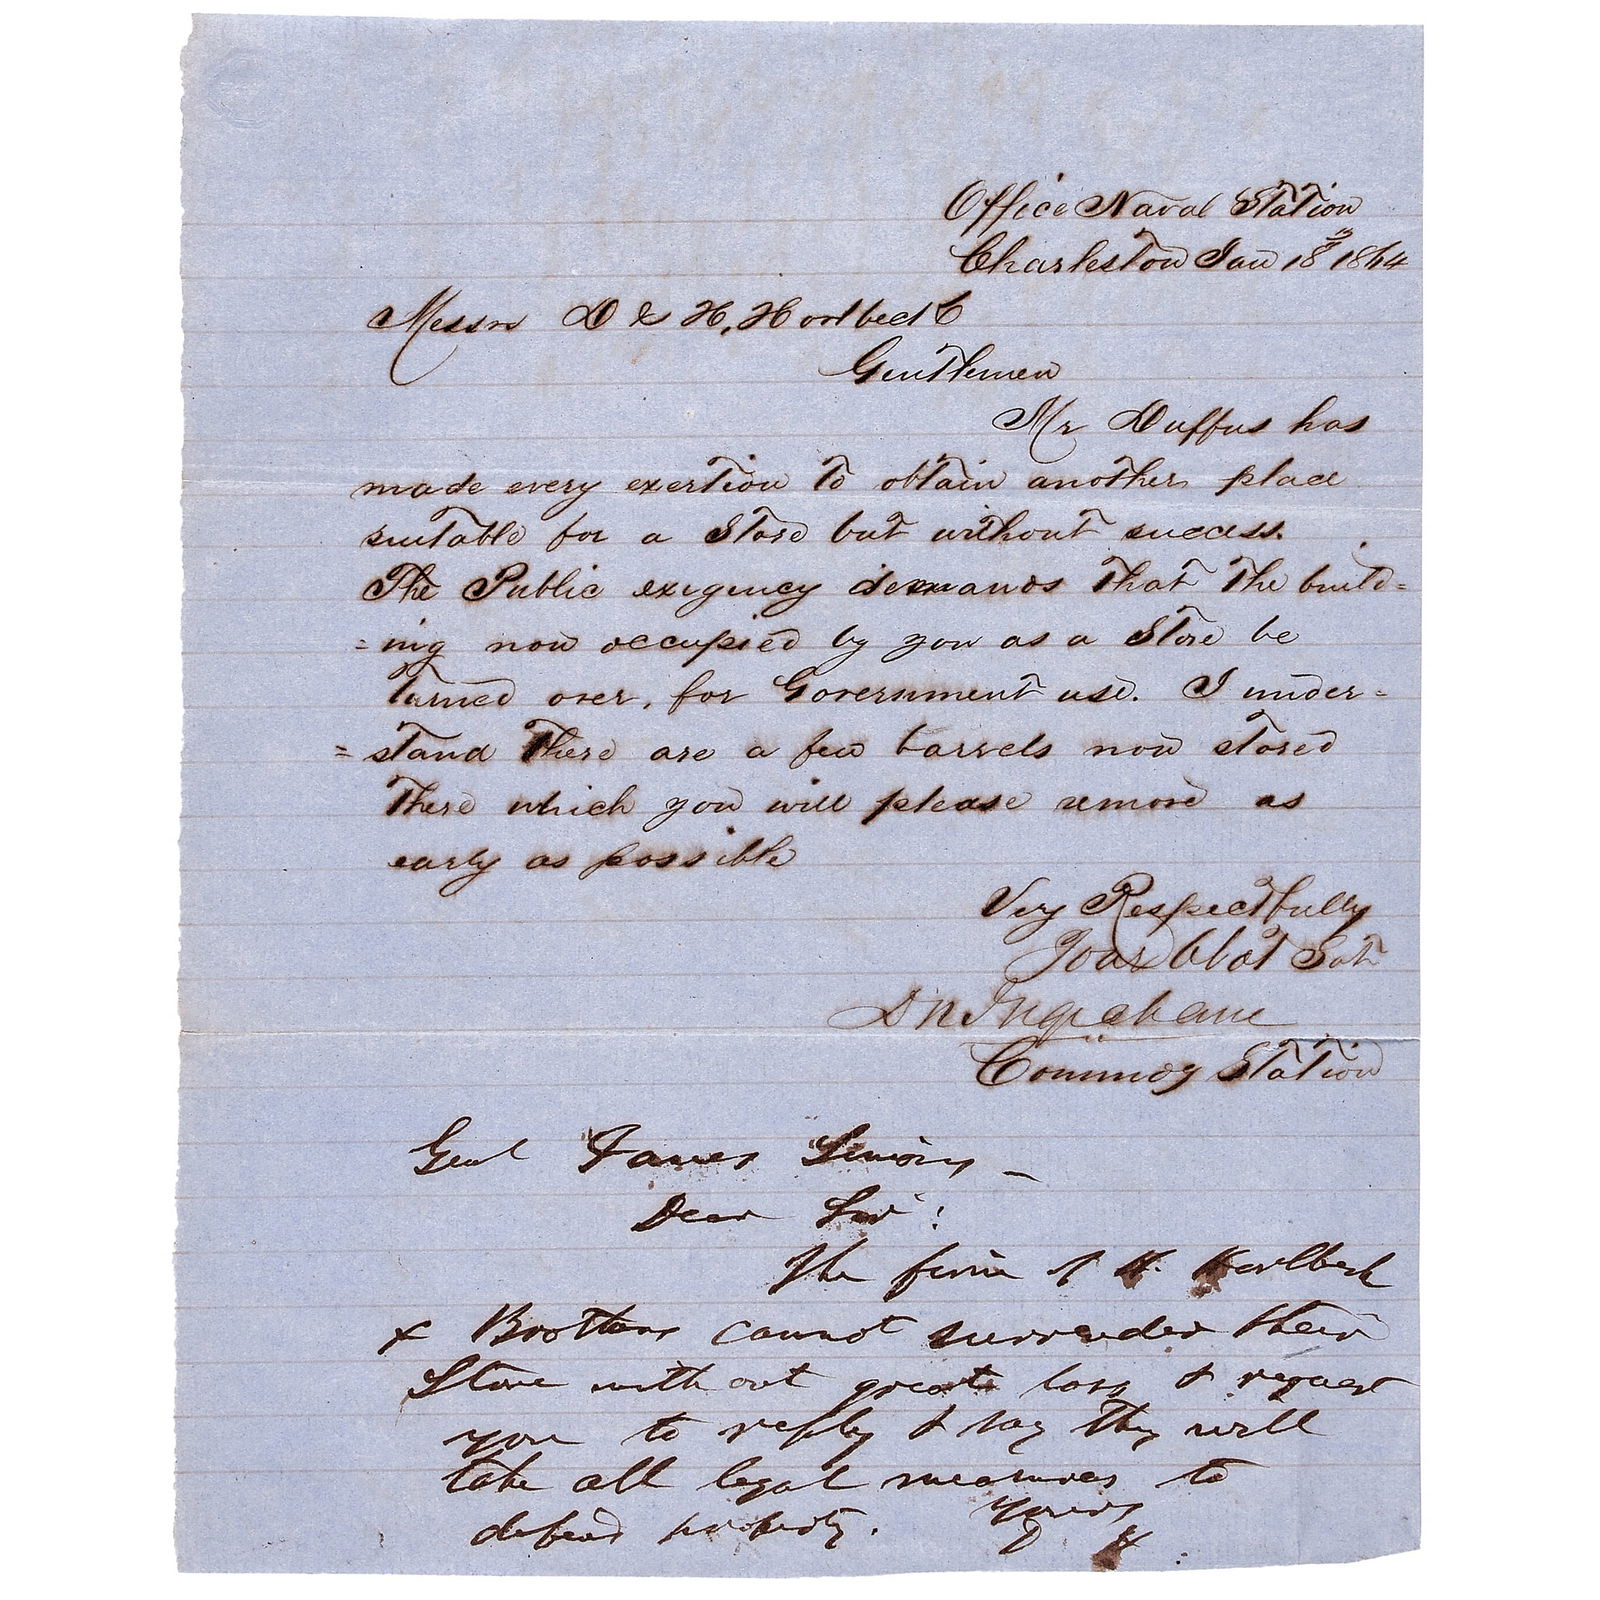 Office Naval Station
Charleston Jan 18th 1864
Messrs D & H. Horlbeck
Gentlemen
Mr Duffus has
made every exertion to obtain another place
suitable for a Store but without success.
The Public exigency demands that the build=
=ing now occupied by you as a Store be
turned over, for Government use. I under=
=stand there are a few barrels now stored
there which you will please remove as
early as possible
Very Respectfully
Your Obdt Svt
D N Ingraham
Commdg Station
Genl James Simons –
Dear Sir:
The firm of H. Horlbeck
& Brothers cannot surrender their
Store without great loss & request
you to reply & say they will
take all legal measures to
defend property. Yours
D H